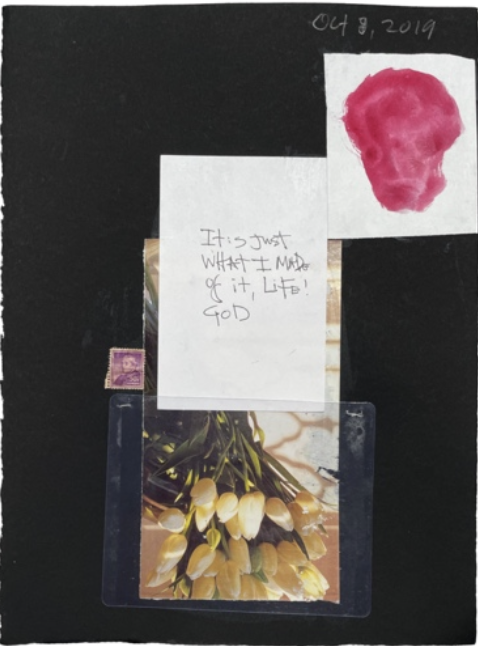 Oct 8, 2019
It is just
WHAT I MADE
of it, LiFE!
GOD